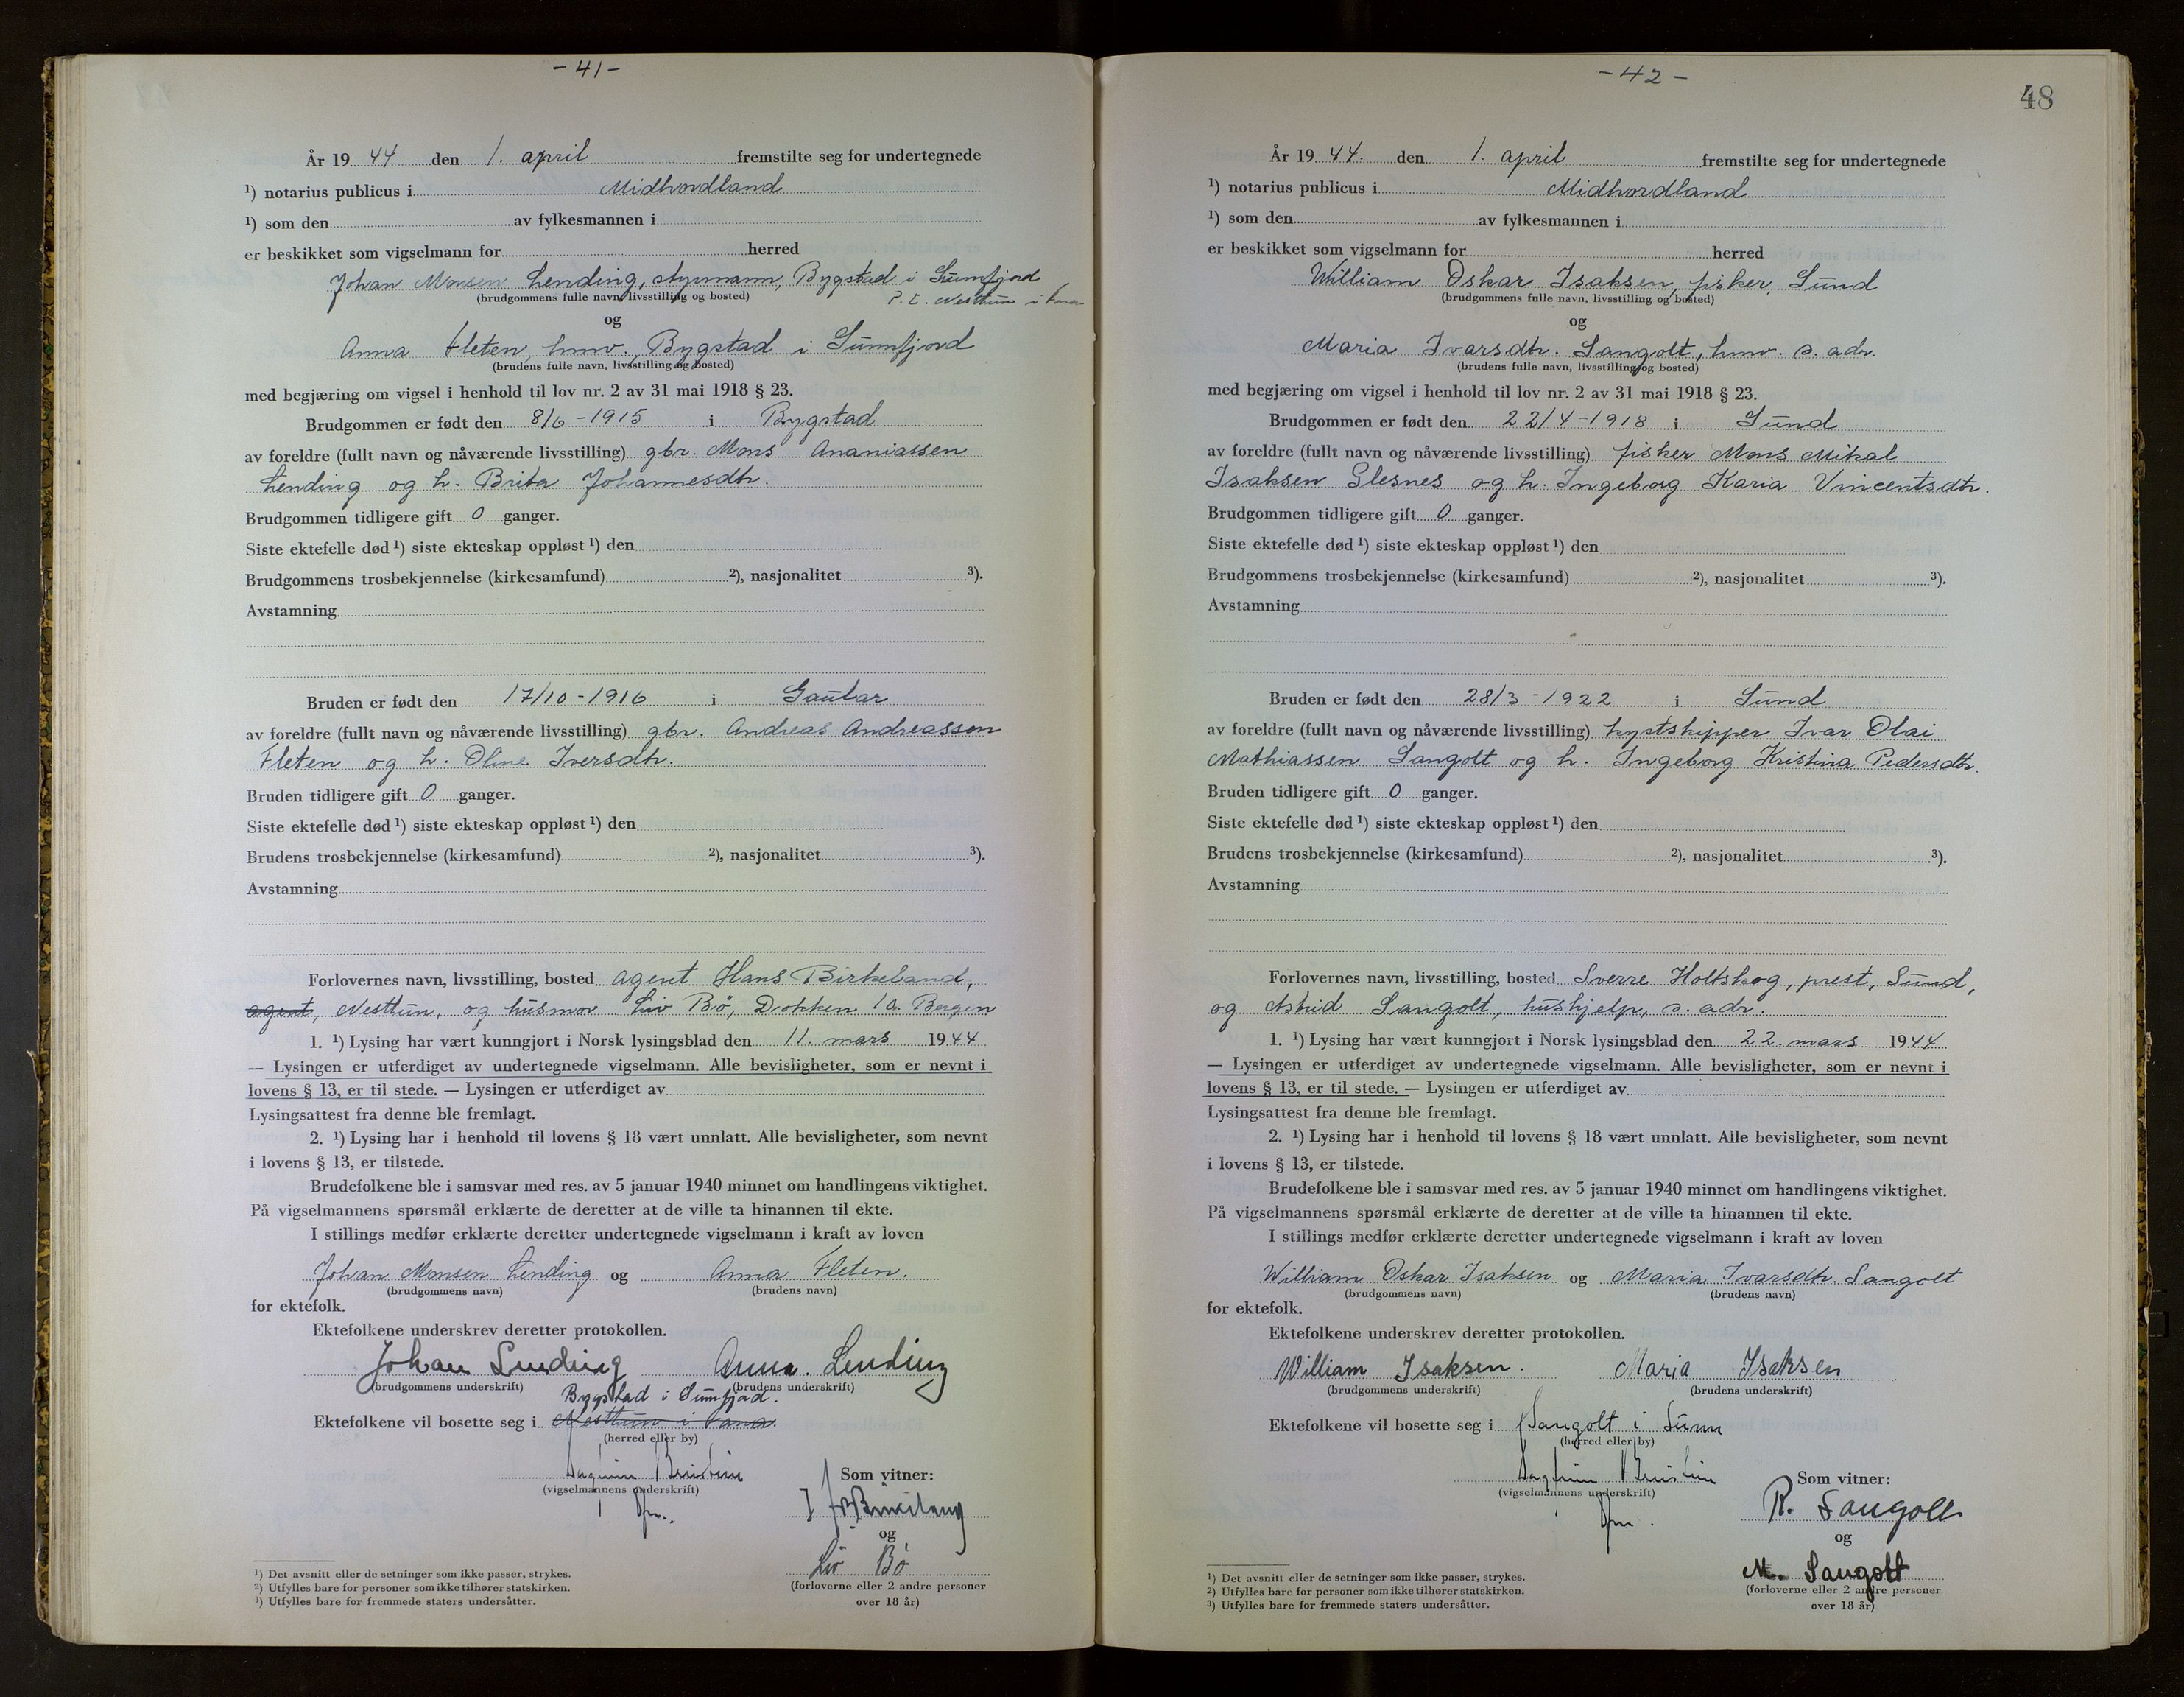 - 41 -
År 19 44 den 1. april fremstilte seg for undertegnede
¹) notarius publicus i Midhordland
¹) som den av fylkesmannen i
er beskikket som vigselmann for herred
Johan Monsen Lending, styrmann, Bygstad i Sunnfjord
(brudgommens fulle navn, livsstilling og bosted) P. t. Nesttun i Fana
og
Anna Fleten, hmv., Bygstad i Sunnfjord
(brudens fulle navn, livsstilling og bosted)
med begjæring om vigsel i henhold til lov nr. 2 av 31 mai 1918 § 23.
Brudgommen er født den 8/6-1915 i Bygstad
av foreldre (fullt navn og nåværende livsstilling) gbr. Mons Ananiassen
Lending og h. Brita Johannesdtr.
Brudgommen tidligere gift 0 ganger.
Siste ektefelle død ¹) siste ekteskap oppløst ¹) den
Brudgommens trosbekjennelse (kirkesamfund) ²), nasjonalitet ³).
Avstamning
Bruden er født den 17/10-1916 i Gaular
av foreldre (fullt navn og nåværende livsstilling) gbr. Andreas Andreasson
Fleten og h. Oline Iversdtr.
Bruden tidligere gift 0 ganger.
Siste ektefelle død ¹) siste ekteskap oppløst ¹) den
Brudens trosbekjennelse (kirkesamfund) ²), nasjonalitet ³).
Avstamning
Forlovernes navn, livsstilling, bosted agent Hans Birkeland,
agent, Nesttun, og husmor Liv Bö, Dokken 10. Bergen
1. ¹) Lysing har vært kunngjort i Norsk lysingsblad den 11. mars 1944
— Lysingen er utferdiget av undertegnede vigselmann. Alle bevisligheter, som er nevnt i
lovens § 13, er til stede. — Lysingen er utferdiget av
Lysingsattest fra denne ble fremlagt.
2. ¹) Lysing har i henhold til lovens § 18 vært unnlatt. Alle bevisligheter, som nevnt
i lovens § 13, er tilstede.
Brudefolkene ble i samsvar med res. av 5 januar 1940 minnet om handlingens viktighet.
På vigselmannens spørsmål erklærte de deretter at de ville ta hinannen til ekte.
I stillings medfør erklærte deretter undertegnede vigselmann i kraft av loven
Johan Monsen Lending og Anna Fleten.
(brudgommens navn) (brudens navn)
for ektefolk.
Ektefolkene underskrev deretter protokollen.
Johan Lending Anna. Lending
(brudgommens underskrift) (brudens underskrift)
Bygstad i Sunnfjord.
Ektefolkene vil bosette seg i Nesttun i Fana.
(herred eller by)
Som vitner:
(vigselmannens underskrift)
og
Liv Bö
(forloverne eller 2 andre personer
over 18 år)
¹) Det avsnitt eller de setninger som ikke passer, strykes.
²) Utfylles bare for personer som ikke tilhører statskirken.
³) Utfylles bare for fremmede staters undersåtter.
- 42 -
48
År 19 44. den 1. april fremstilte seg for undertegnede
¹) notarius publicus i Midhordland
¹) som den av fylkesmannen i
er beskikket som vigselmann for herred
William Oskar Isaksen, fisker, Sund
(brudgommens fulle navn, livsstilling og bosted)
og
Maria Ivarsdtr. Sangolt, hmv. s. adr.
(brudens fulle navn, livsstilling og bosted)
med begjæring om vigsel i henhold til lov nr. 2 av 31 mai 1918 § 23.
Brudgommen er født den 22/4-1918 i Sund
av foreldre (fullt navn og nåværende livsstilling) fisker Mons Mikal
Isaksen Glesnes og h. Ingeborg Karia Vincentsdtr.
Brudgommen tidligere gift 0 ganger.
Siste ektefelle død ¹) siste ekteskap oppløst ¹) den
Brudgommens trosbekjennelse (kirkesamfund) ²), nasjonalitet ³).
Avstamning
Bruden er født den 28/3-1922 i Sund
av foreldre (fullt navn og nåværende livsstilling) kystskipper Ivar Olai
Mathiassen Sangolt og h. Ingeborg Kristina Pedersdtr.
Bruden tidligere gift 0 ganger.
Siste ektefelle død ¹) siste ekteskap oppløst ¹) den
Brudens trosbekjennelse (kirkesamfund) ²), nasjonalitet ³).
Avstamning
Forlovernes navn, livsstilling, bosted Sverre Holtskog, prest, Sund,
og Astrid Sangolt, hushjelp, s. adr.
1. ¹) Lysing har vært kunngjort i Norsk lysingsblad den 22. mars 1944
— Lysingen er utferdiget av undertegnede vigselmann. Alle bevisligheter, som er nevnt i
lovens § 13, er til stede. — Lysingen er utferdiget av
Lysingsattest fra denne ble fremlagt.
2. ¹) Lysing har i henhold til lovens § 18 vært unnlatt. Alle bevisligheter, som nevnt
i lovens § 13, er tilstede.
Brudefolkene ble i samsvar med res. av 5 januar 1940 minnet om handlingens viktighet.
På vigselmannens spørsmål erklærte de deretter at de ville ta hinannen til ekte.
I stillings medfør erklærte deretter undertegnede vigselmann i kraft av loven
William Oskar Isaksen og Maria Ivarsdtr. Sangolt
(brudgommens navn) (brudens navn)
for ektefolk.
Ektefolkene underskrev deretter protokollen.
William Isaksen. Maria Isaksen
(brudgommens underskrift) (brudens underskrift)
Ektefolkene vil bosette seg i Sangolt i Sunn
(herred eller by)
Som vitner:
(vigselmannens underskrift)
R. Sangolt
og
M. Sangolt
(forloverne eller 2 andre personer
over 18 år)
¹) Det avsnitt eller de setninger som ikke passer, strykes.
²) Utfylles bare for personer som ikke tilhører statskirken.
³) Utfylles bare for fremmede staters undersåtter.